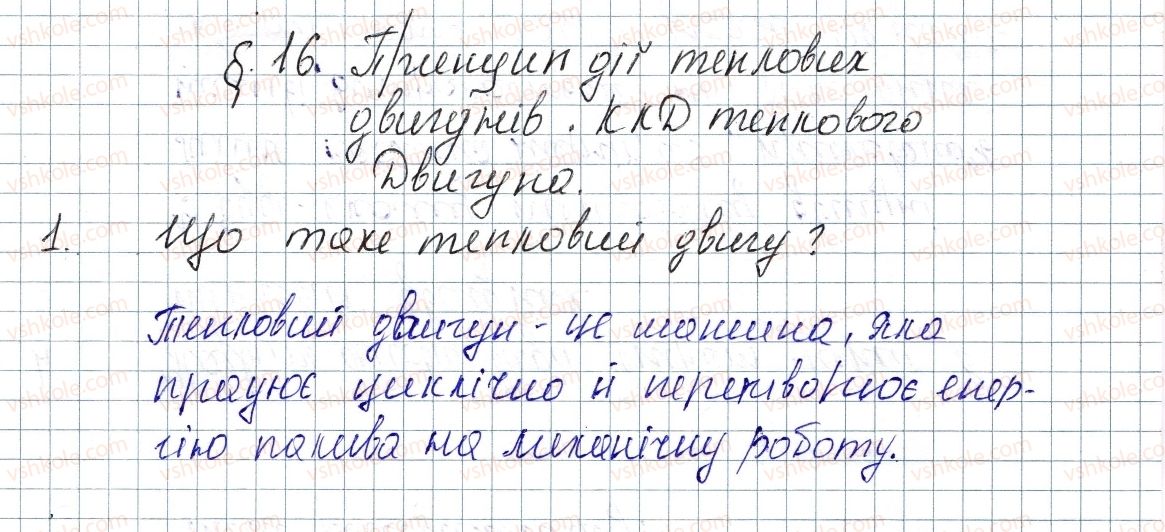 §. 16. Принцип дії теплових
двигунів. ККД теплового
Двигуна.
1. Що таке тепловий двигу?
Тепловий двигун - це машина, яка
працює циклічно й перетворює енер-
гію палива на механічну роботу.